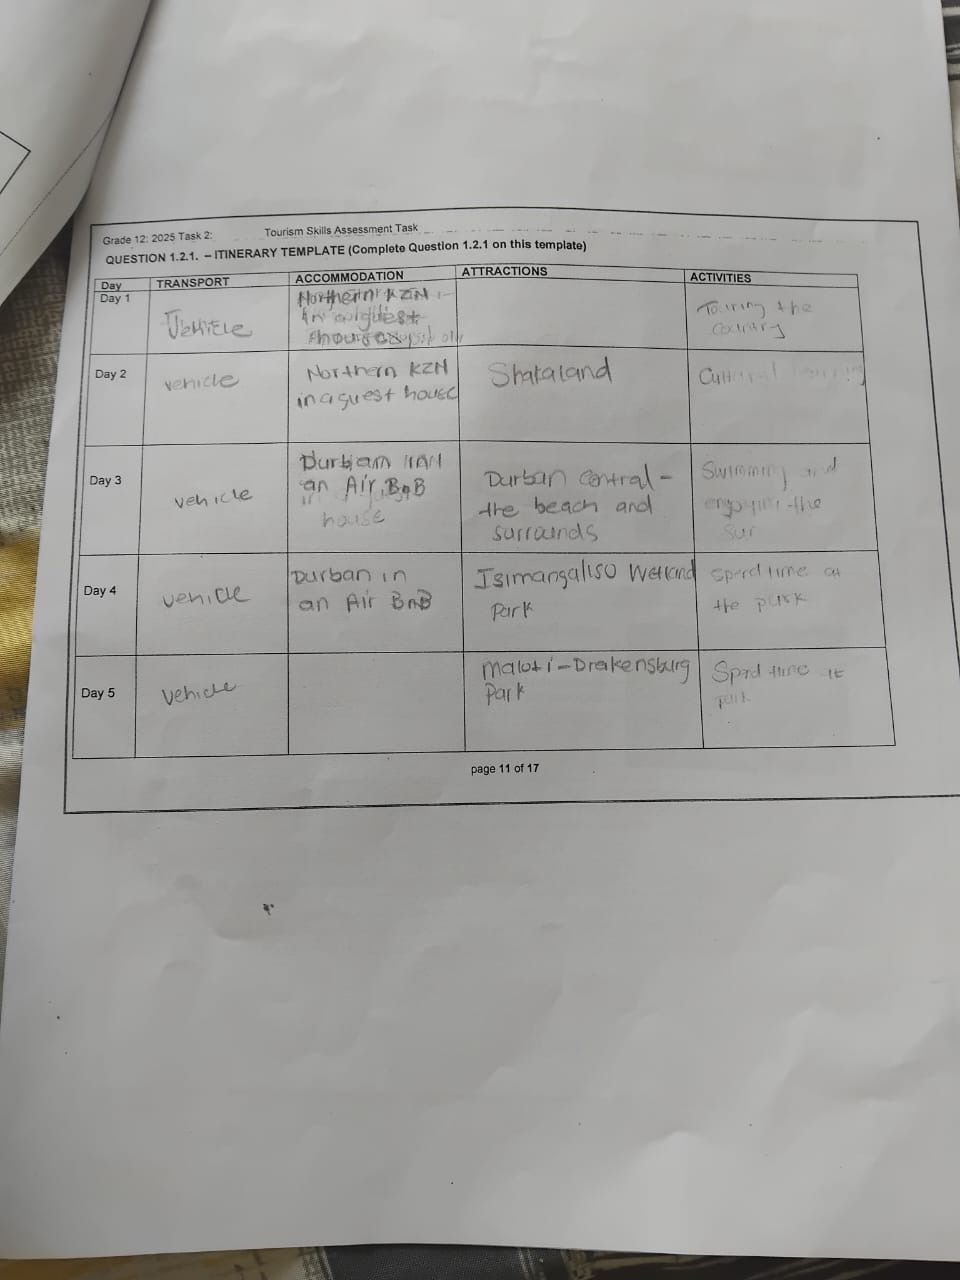 Grade 12: 2025 Task 2: Tourism Skills Assessment Task
QUESTION 1.2.1. – ITINERARY TEMPLATE (Complete Question 1.2.1 on this template)
Day TRANSPORT ACCOMMODATION ATTRACTIONS ACTIVITIES
Day 1
Vehicle
Northern KZN
guest
Touring the
country
Day 2
vehicle
Northern KZN
in a guest house
Shakaland
Cultural
Day 3
vehicle
Durban
an Air BnB
house
Durban central -
the beach and
surrounds
Swimming and
enjoying the
sun
Day 4
vehicle
Durban in
an Air BnB
Isimangaliso Wetland
Park
Spend time at
the park
Day 5
vehicle
Maloti-Drakensburg
Park
Spend time at
park
page 11 of 17